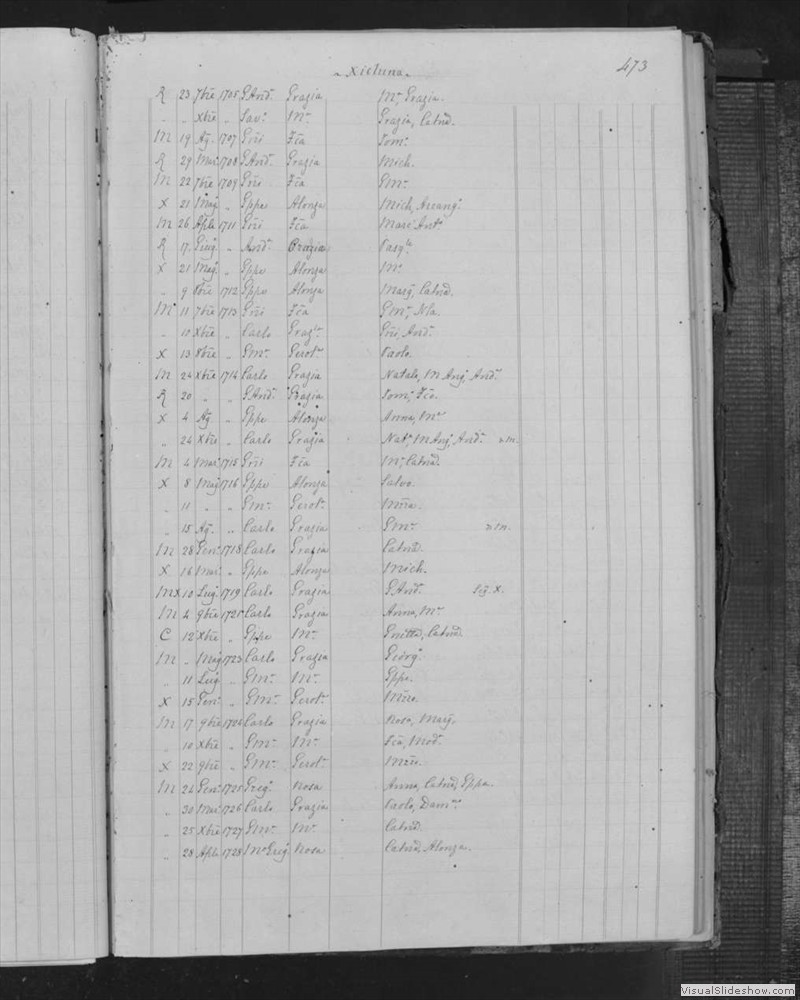 Xicluna
473
R 23 7bre 1705 GAnd. Grazia Ma Grazia.
" " Xbre " Sav. Ma Grazia, Catnã.
M 19 Ag. 1707 Gni Fca Tom.
R 29 Mar. 1708 GAnd. Grazia Mich.
M 22 7bre 1709 Gni Fca GMa
X 21 Mag. " Gppe Alonza Mich, Arcang.
M 26 Aple 1711 Gni Fca Marc Ant.
R 17 Giug. " And. Grazia Pasq.
X 21 Mag. " Gppe Alonza Ma
" 9 8bre 1712 Gppe Alonza Marg, Catnã.
M 11 7bre 1713 Gni Fca GMa, Nla.
" 10 Xbre " Carlo Graz. Gni, And.
X 13 8bre " GMa Gerot. Paolo
M 24 Xbre 1714 Carlo Grazia Natale, M Ang. And.
R 20 " " GAnd. Grazia Tom. Fca.
X 4 Ag. " Gppe Alonza Anna, Ma
" 24 Xbre " Carlo Grazia Nat. M Ang. And.
M 4 Mar. 1715 Gni Fca Ma, Catnã.
X 8 Mag 1716 Gppe Alonza Salvo.
" 11 " " GMa Gerot.
" 15 Ag. " Carlo Grazia GMa
M 28 Gen. 1718 Carlo Grazia Catnã.
X 16 Mar. " Gppe Alonza Mich.
MX 10 Lug. 1719 Carlo Grazia GAnd.
M 4 9bre 1721 Carlo Grazia Anna, Ma
C 12 Xbre " Gppe Ma Catnã.
M " Mag 1723 Carlo Grazia Giorg.
" 11 Lug " GMa Ma Gppe.
X 15 Gen. " GMa Gerot.
M 17 9bre Carlo Grazia Rosa, Marg.
" 10 Xbre " GMa Ma Fca, Mod.
X 22 9bre " GMa Gerot.
M 24 Gen. 1725 Greg. Rosa Anna, Catnã, Gppa.
" 30 Mar. 1726 Carlo Grazia Paolo, Dam.
" 25 Xbre 1727 GMa Ma Catnã.
" 28 Aple 1728 Rosa Catnã, Alonza.
VisualSlideshow.com